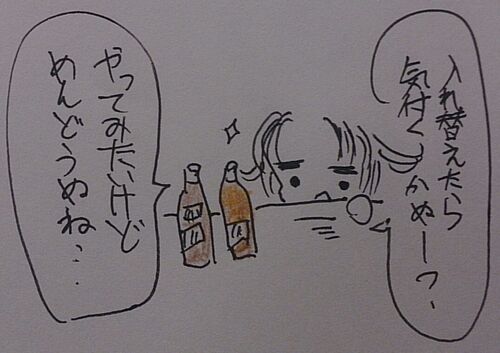 入れ替えたら
気付く
かぬーっ、
やってみたいけど
めんどうぬね…